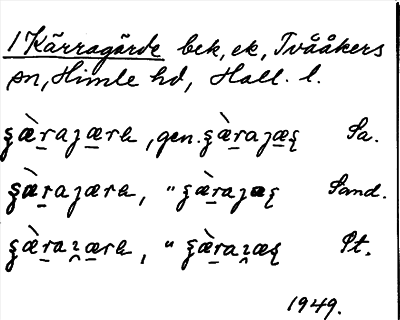 1 Kärragärde bek, ek, Tvååkers
sn, Himle hd, Hall. l.
ʂæ̀raȷæra, gen. ʂæ̀raȷæʂ Sa.
ʂæ̀raȷæra, " ʂæ̀raȷæʂ Sand.
ʂæ̀raʐæra, " ʂæ̀raʐæʂ Pt.
1949.